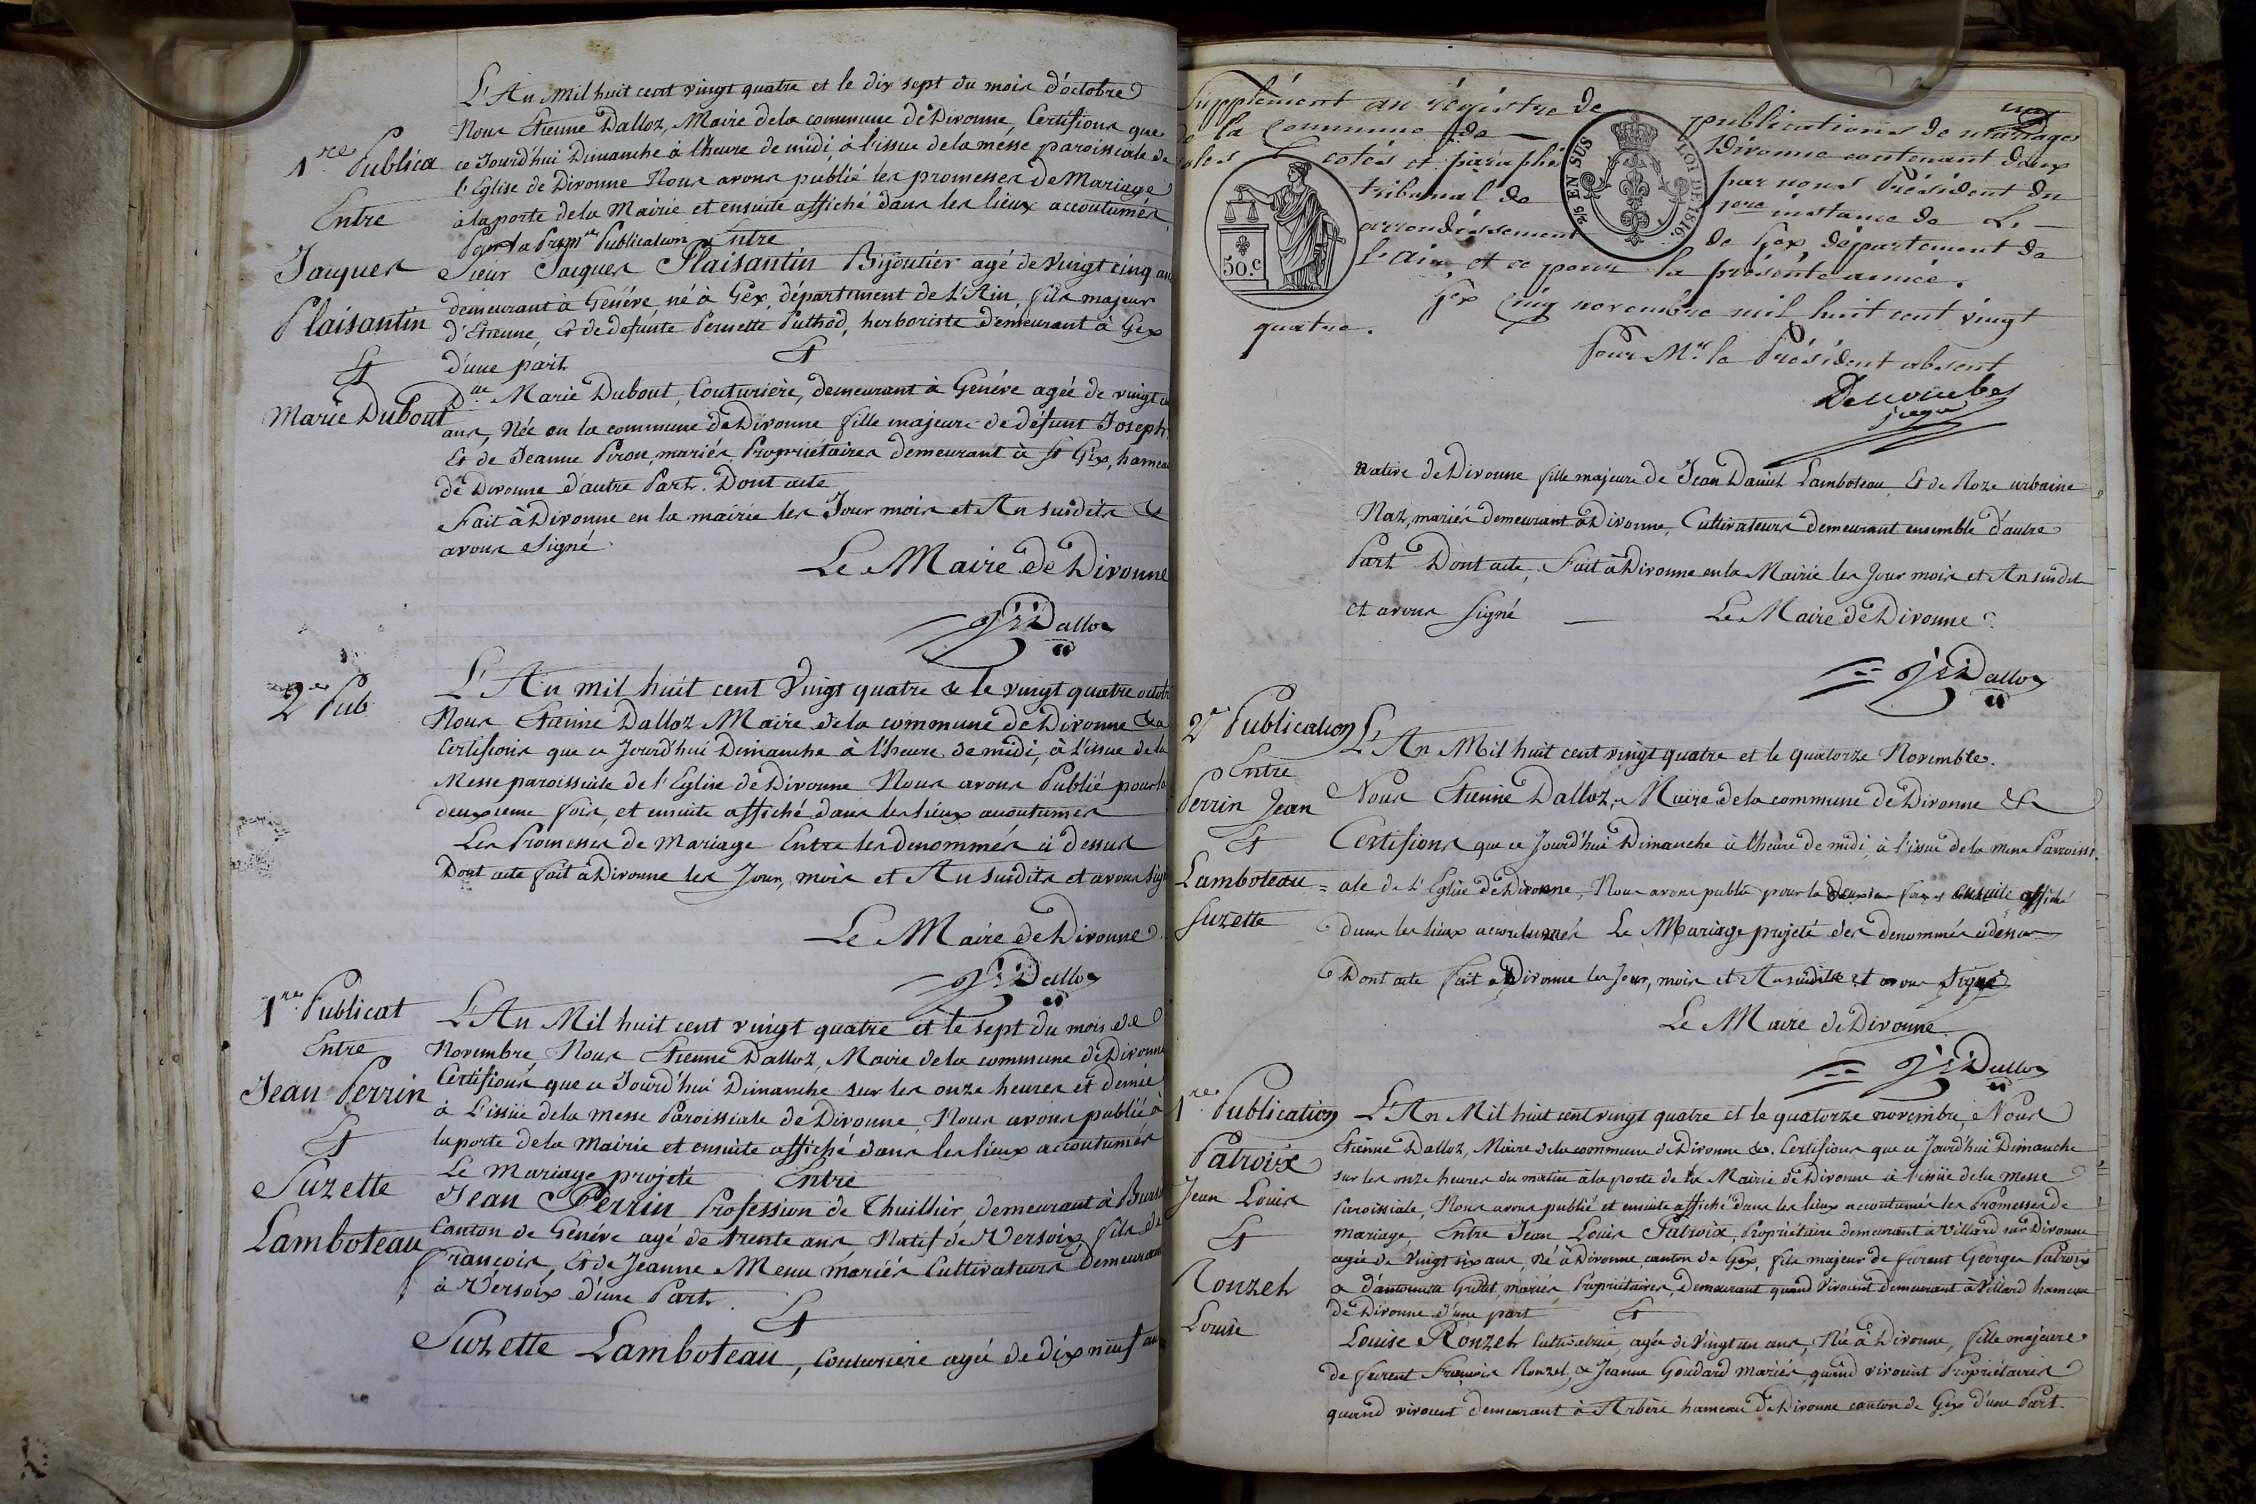 L'An Mil huit cent vingt quatre et le dix sept du mois d'octobre
Nous Etienne Dalloz, Maire de la commune de Divonne, Certifions que
1re Publica
ce Jourd'hui Dimanche à l'heure de midi à l'issue de la messe paroissiale de
l'Eglise de Divonne Nous avons publié les promesses De Mariage
Entre
à la porte de la Mairie et ensuite affiché dans les lieux accoutumés
Pour la Premre Publication Entre
Jacques
Plaisantin
Et
Marie Dubout
Sieur Jacques Plaisantin Bijoutier agé de vingt cinq an
demeurant à Genéve né à Gex, département de L'Ain, fils majeur
d'Etienne, Et de defunte Pernette Puthod, herboriste demeurant à Gex
d'une part Et
Dlle Marie Dubout, Couturière, demeurant à Genéve agée de vingt
ans, Née en la commune de Divonne fille majeure de défunt Joseph
Et de Jeanne Piron, mariés Propriétaires demeurant à St Gix, hameau
de Divonne d'autre Part. Dont acte
Fait à Divonne en la mairie les Jour mois et An susdits &
avons signé
Le Maire de Divonne
Dalloz
2e Pub
L'An mil huit cent Vingt quatre & le vingt quatre octob
Nous Etienne Dalloz Maire de la commune de Divonne &a
Certifions que ce Jourd'hui Dimanche à l'heure de midi, à l'issue de la
Messe paroissiale de l'Eglise de Divonne Nous avons Publié pour la
deuxieme fois, et ensuite affiché dans les lieux acoutumés
Les Promesses de Mariage Entre les denommés ci dessus
Dont acte fait à Divonne les Jour, mois et An susdits et avons sig
Le Maire de Divonne
Dalloz
1re Publicat
Entre
Jean Perrin
Et
Suzette
Lamboteau
L'An Mil huit cent vingt quatre et le sept du mois de
Novembre, Nous Etienne Dalloz, Maire de la commune de Divonne
Certifions que ce Jourd'hui Dimanche sur les onze heures et demie
à L'issüe de la messe Paroissiale de Divonne, Nous avons publié à
la porte de la mairie et ensuite affiché dans les lieux accoutumés
Le mariage projeté Entre
Jean Perrin Profession de Thuillier demeurant à
Canton de Genéve agé de trente ans Natif de Versoix fils de
François, Et de Jeanne Menu mariés Cultivateurs Demeurant
à Versoix d'une Part.
Et
Suzette Lamboteau, Couturiere agée de dix neuf an
Supplément au régistre de publications de mariages
de la Commune de Divonne contenant deux
cotés et paraphé par nous Président du
tribunal de 1ere instance de L.
arrondissement de Gex département de
l'Ain, et ce pour la présente année.
Gex Cinq novembre mil huit cent vingt
quatre.
Pour Mr. le Président absent
EN SUS
LOI DE 1816.
50.c
native de Divonne fille majeure de Jean Daniel Lamboteau, Et de Roze urbaine
Naz, mariés demeurant à Divonne, Cultivateurs demeurant ensemble d'autre
Part Dont acte, Fait à Divonne en la Mairie les Jour mois et An susdit
et avons signé
Le Maire de Divonne
Dalloz
2e Publication
Entre
Perrin Jean
Et
Lamboteau
Suzette
L'An Mil huit cent vingt quatre et le quatorze Novembre.
Nous Etienne Dalloz, Maire de la commune de Divonne &a
Certifions que ce Jourd'hui Dimanche à l'heure de midi, à l'issue de la messe Parroissi
= ale de L'Eglise de Divonne, Nous avons publié pour la Deuxieme fois et ensuite affiché
dans les lieux accoutumés Le Mariage projeté des denommés ci dessus
Dont acte fait à Divonne les Jour, mois et An susdits et avons signé
Le Maire de Divonne
Dalloz
1re Publication
Patroix
Jean Louis
Et
Ronzet
Louise
L'An Mil huit cent vingt quatre et le quatorze novembre, Nous
Etienne Dalloz, Maire de la commune de Divonne &a. Certifions que ce Jourd'hui Dimanche
sur les onze heures du matin à la porte de la Mairie de Divonne à l'issüe de la Messe
Paroissiale, Nous avons publié et ensuite affiché dans les lieux accoutumés les Promesses de
Mariage, Entre Jean Louis Patroix, Propriétaire demeurant à Villard sur Divonne
agé de Vingt six ans, Né à Divonne canton de Gex, fils majeur de furent Georges Patroix
& d'antoinette Grillet, mariés, Propriétaires, Demeurant quand Vivoient demeurant à Villard hameau
de Divonne d'une part Et
Louise Ronzet Cultivatrice, agée de Vingt un ans, Née à Divonne, fille majeure
de furent François Ronzet, & Jeanne Goudard Mariés, quand vivoient Propriétaires
quand vivoient demeurant à Arbère hameau de Divonne canton de Gex d'une Part.